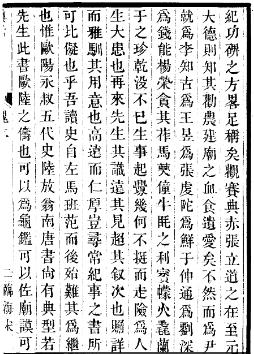 紀功碑之方畧足稱矣觀賽典赤張立道之在至元
大德則知其勸農建廟之血食遺愛矣不然而爲尹
就爲李知古爲王昱爲張虔陀爲鮮于仲通爲劉深
爲錢能楊榮貪其荏馬僰僮牛毦之利寶蠑火齊蘭
于之珍乾沒不已生事起釁幾何不挺而走險爲人
生大患也再來先生其識遠其見超其敘次也贍詳
而雅馴其用意也高遠而仁厚豈尋常紀事之書所
可比儗也乎吾讀史自左馬班范而後始難其爲繼
也惟歐陽永叔五代史陸放翁南唐書尚有典型若
先生此書歐陸之儔也可以爲龜鑑可以佐廟謨可